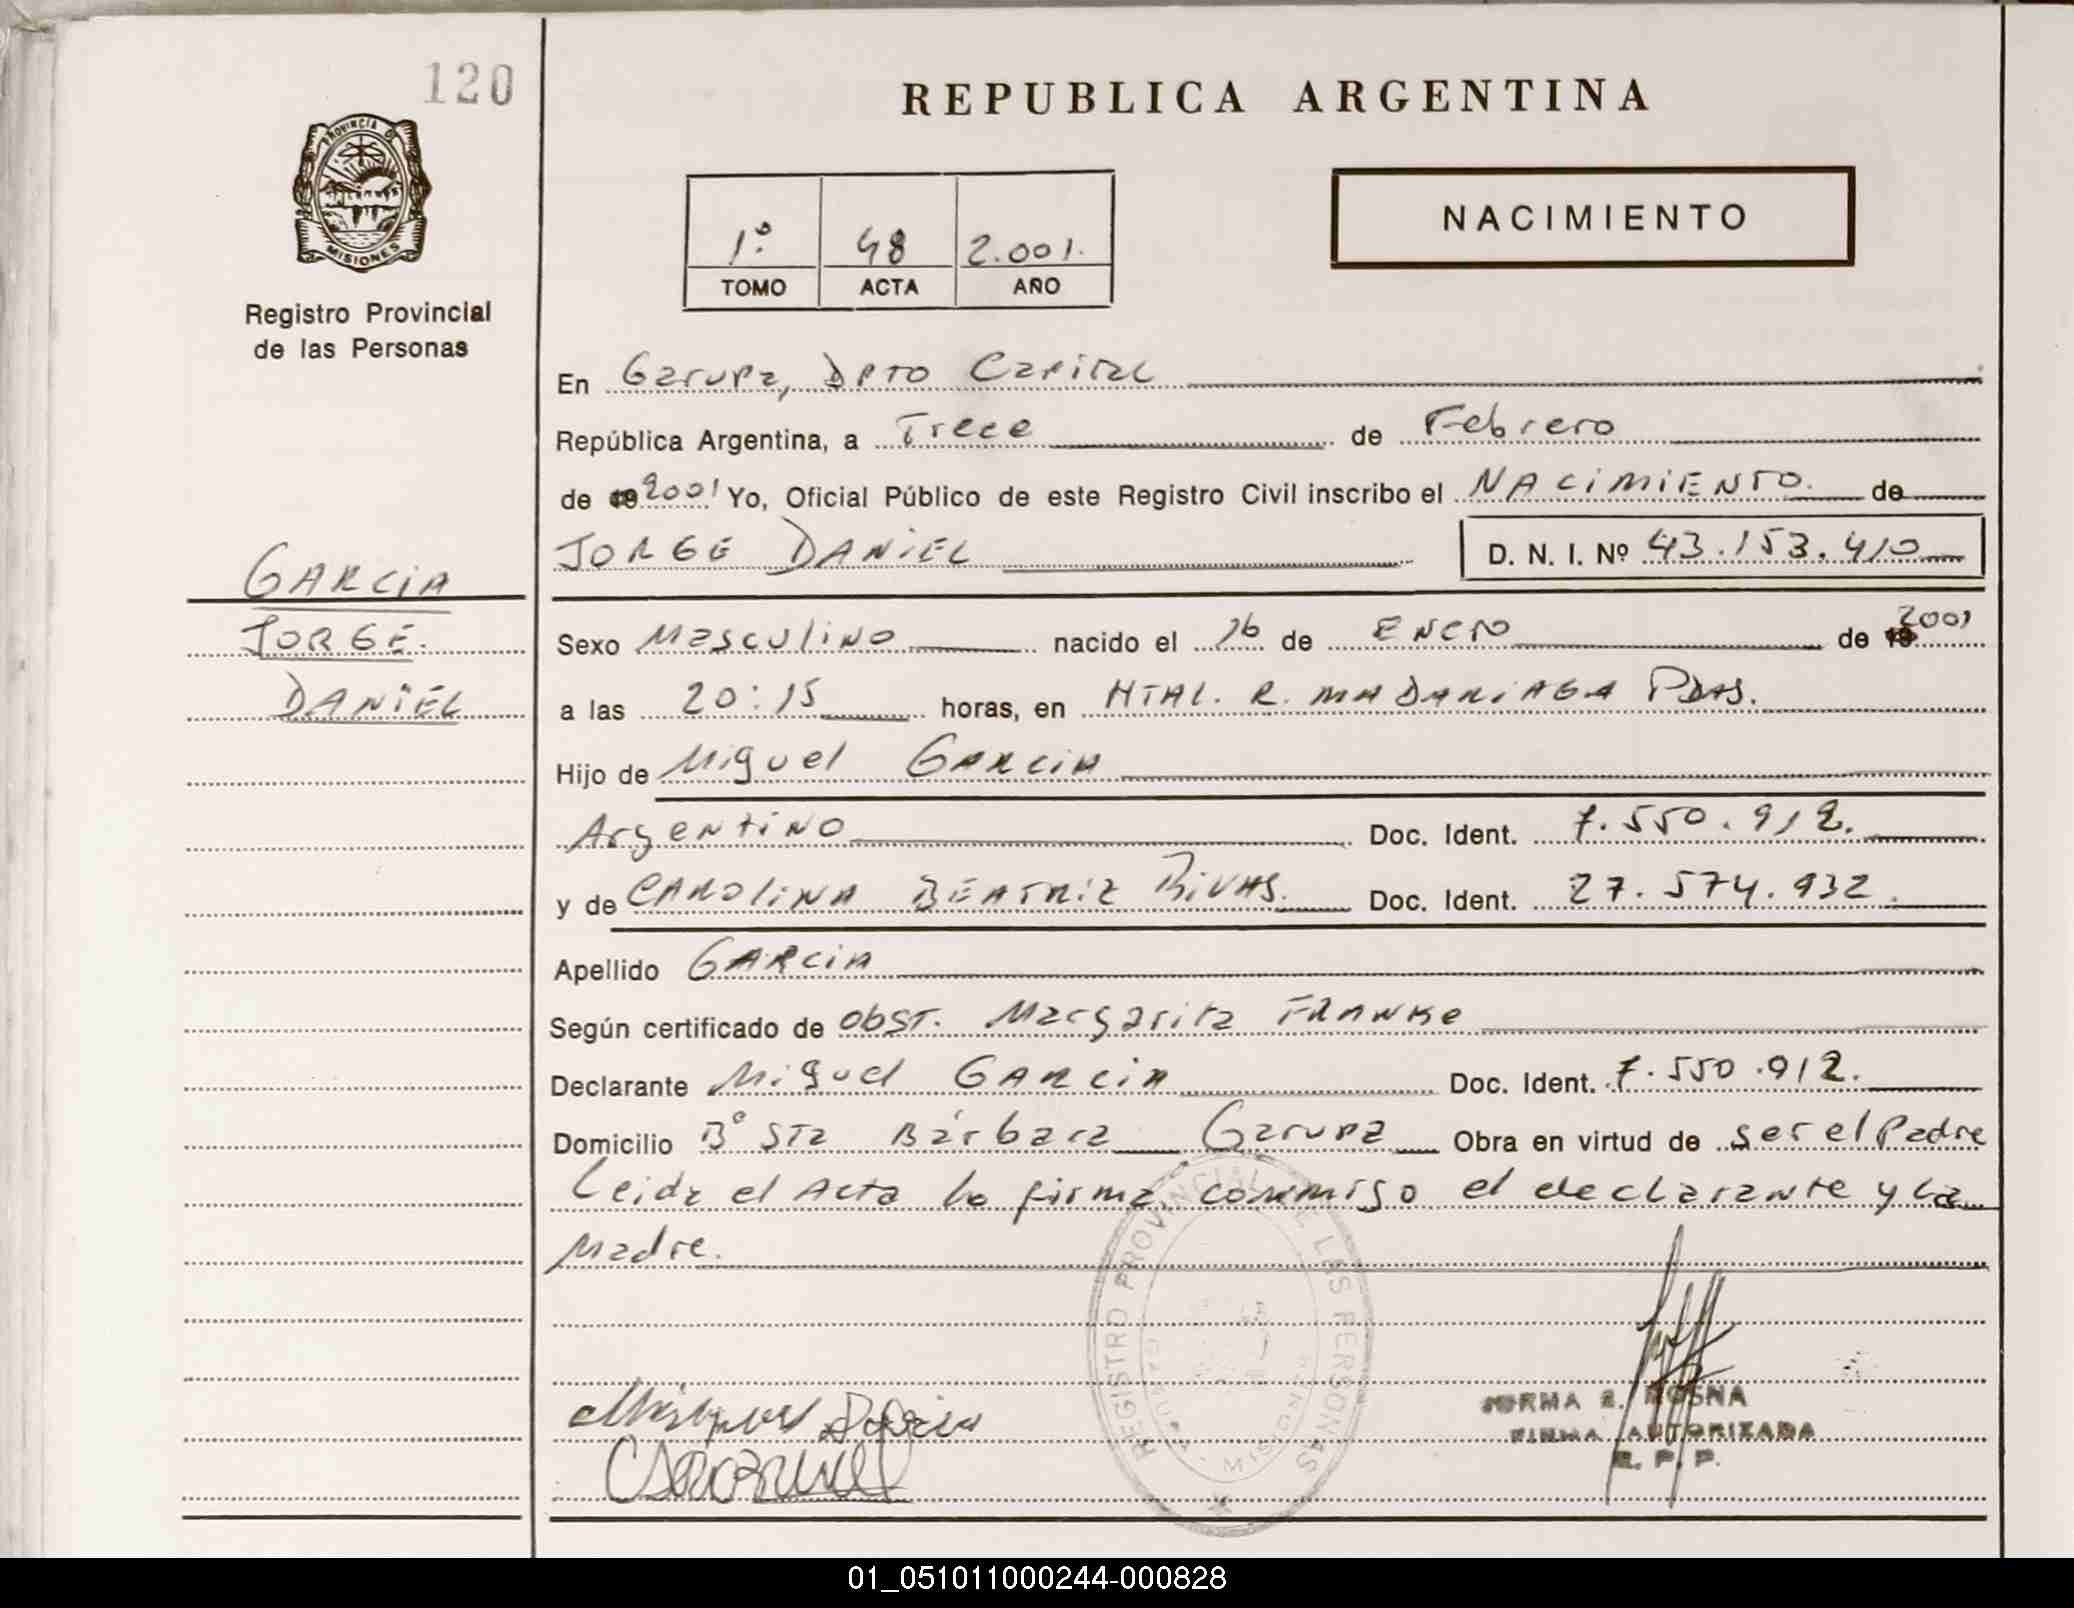 120
REPUBLICA ARGENTINA
PROVINCIA DE MISIONES
NACIMIENTO
1º 48 2.001.
TOMO ACTA AÑO
Registro Provincial
de las Personas
En Garupa, Dpto Capital
República Argentina, a Trece de Febrero
de 19 2001 Yo, Oficial Público de este Registro Civil inscribo el NACIMIENTO. de
JORGE DANIEL D. N. I. Nº 43.153.410
GARCIA
JORGE.
DANIEL
Sexo Masculino nacido el 16 de ENERO de 19 2001
a las 20:15 horas, en HTAL. R. MADARIAGA PDAS.
Hijo de Miguel GARCIA
Argentino Doc. Ident. 7.550.912.
y de CAROLINA BEATRIZ RIVAS. Doc. Ident. 27.574.932.
Apellido GARCIA
Según certificado de obST. Margarita FRANKE
Declarante Miguel GARCIA Doc. Ident. 7.550.912.
Domicilio Bº STa Bárbara Garupa Obra en virtud de ser el Padre
Leida el Acta lo firma conmigo el declarante y la
Madre.
REGISTRO PROVINCIAL DE LAS PERSONAS
GARUPA - MISIONES
NORMA E. ROSNA
FIRMA AUTORIZADA
R. P. P.
01_051011000244-000828